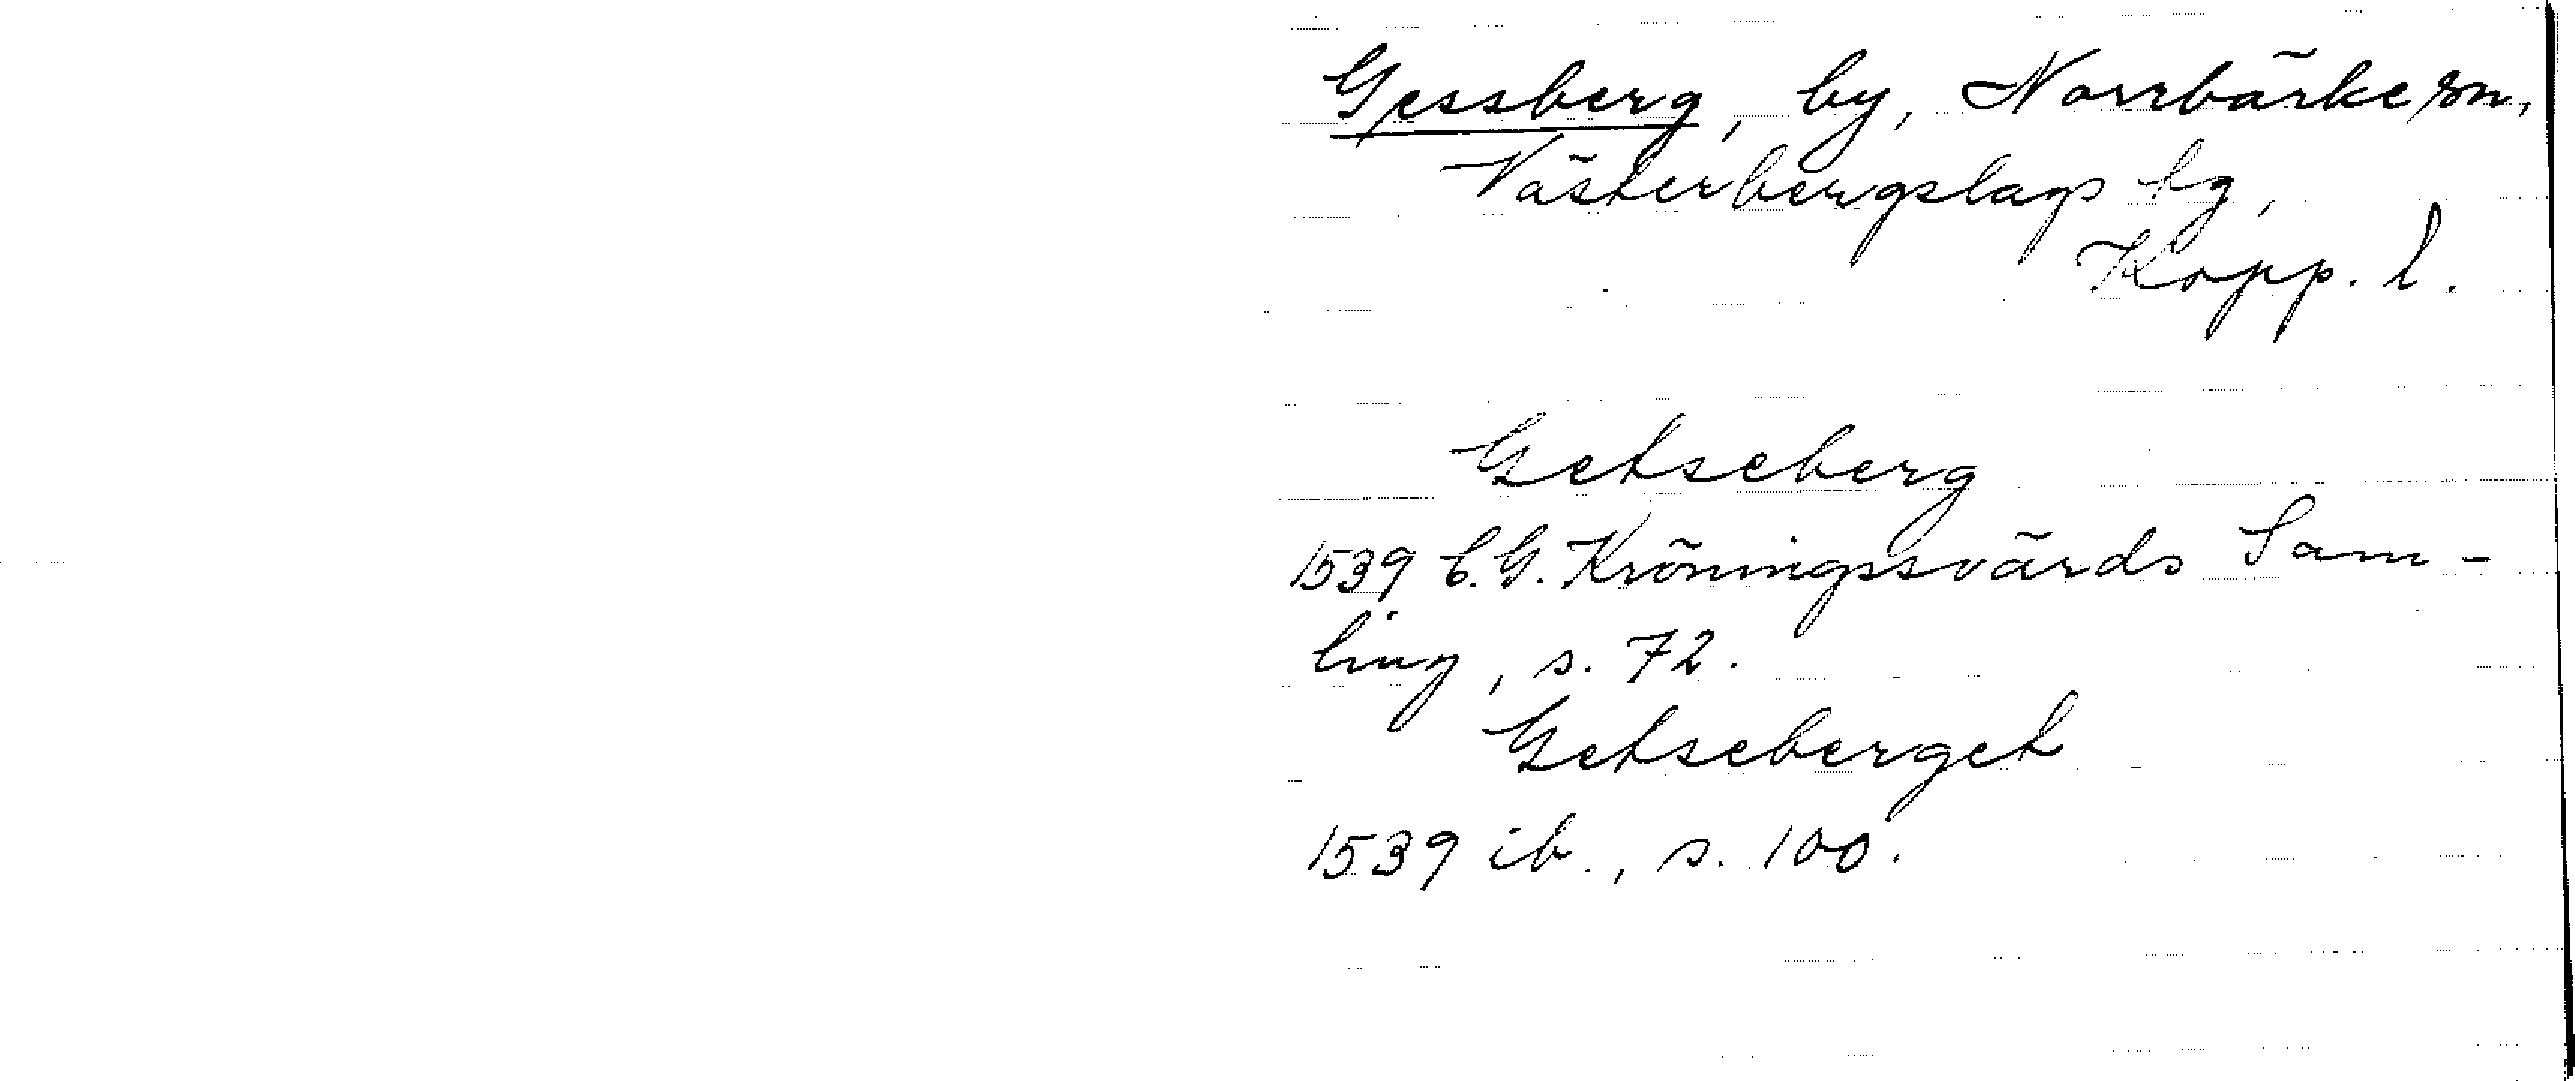 Gessberg, by, Norrbärke sn,
Västerbergslags tg,
Kopp. l.
Getseberg
1539 C.G. Kröningssvärds Sam-
ling, s. 72.
Getseberget
1539 ib., s. 100.